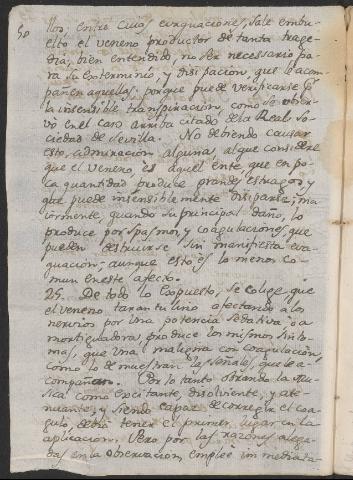 50
llos, entre cuios evaquaciones, sale embu-
elto el veneno productor de tanta trage-
dia, bien entendido, no ser necessario pa
ra su exterminio, y disipacion, que le acom
pañen aquellas; porque puede verificarse p.r
la insensible transpiracion, como se obser
vó en el caso arriba citado de la Real So-
ciedad de Sevilla. No debiendo causar
esto, admiracion alguna, al que considere
que el veneno, es aquel ente, que en po-
ca quantidad produce grandes estragos, y
que puede insensiblemente disiparse; ma
iormente, quando su principal daño, lo
produce por spasmos, y coagulaciones, que
pueden destruirse sin manifiesta eva
quacion; aunque esto es lo menos co-
mun en este afecto.
25. De todo lo expuesto, se colige que
el veneno tarantulino afectando a los
nervios por una potencia sedativa, o a
mortiguadora, produce los mismos sinto-
mas, que una maligna con coagulacion,
como lo demuestran las señales, que le a-
compañan. Por lo tanto obrando la Mu-
sica como excitante, disolviente, y ate-
nuante, y siendo capaz de corregir el coa-
gulo, debió tener el primer lugar en la
aplicacion. Pero por las razones alega-
das en la observacion, emplee immediata-